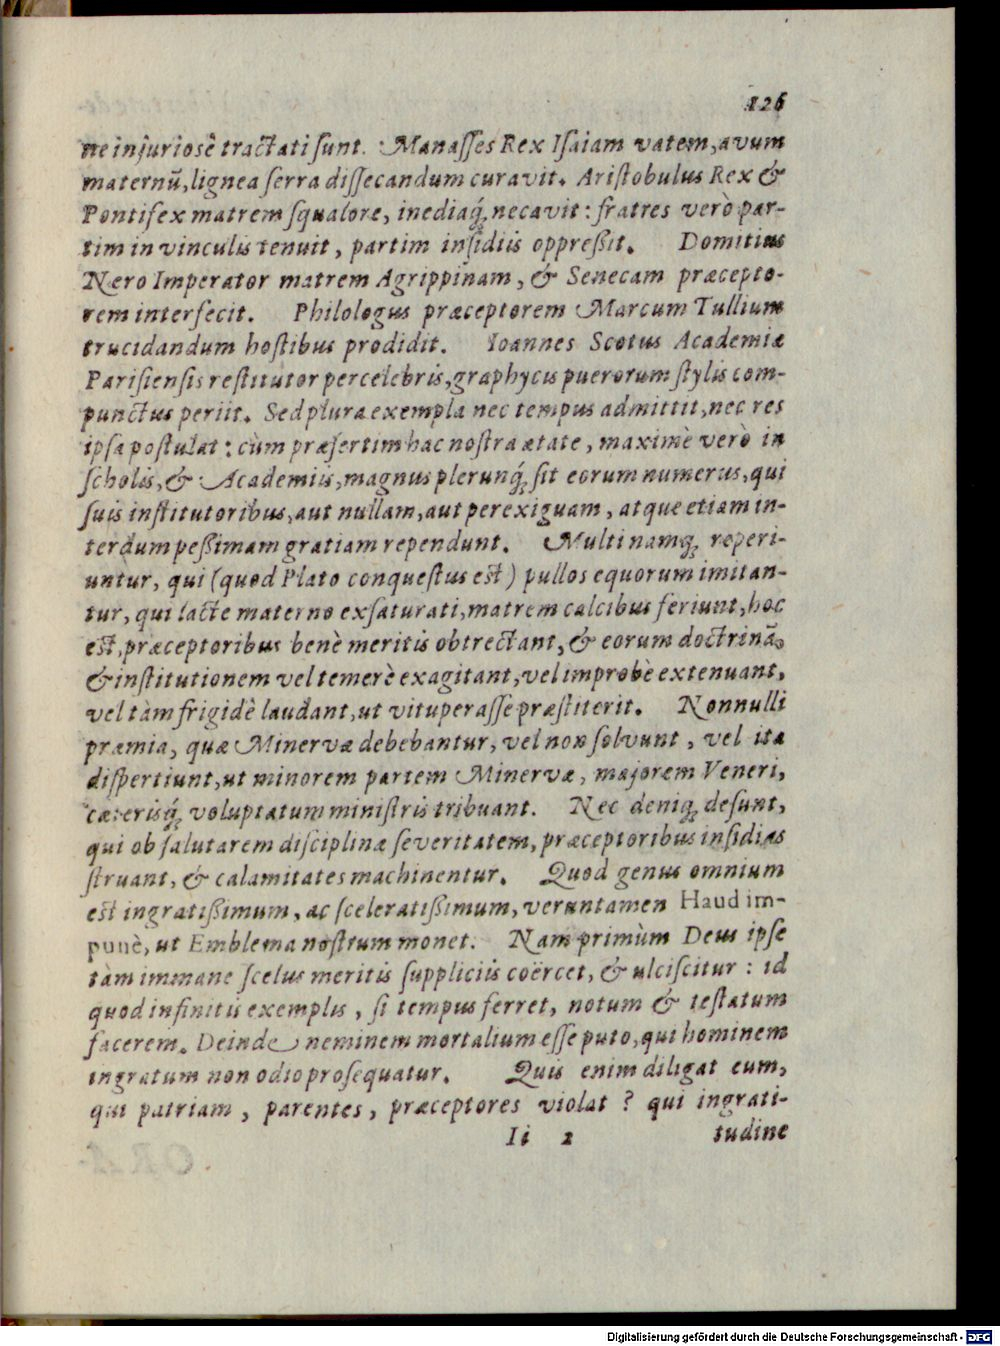 126
ne injuriosè tractati sunt. Manasses Rex Isaiam vatem, avum
maternũ, lignea serra dissecandum curavit. Aristobulus Rex &
Pontifex matrem squalore, inediaq́; necavit: fratres verò par-
tim in vinculis tenuit, partim insidiis oppreßit. Domitius
Nero Imperator matrem Agrippinam, & Senecam præcepto-
rem interfecit. Philologus præceptorem Marcum Tullium
trucidandum hostibus prodidit. Ioannes Scotus Academiæ
Parisiensis restitutor percelebris, graphycis puerorum stylis com-
punctus periit. Sed plura exempla nec tempus admittit, nec res
ipsa postulat: cùm præsertim hac nostra ætate, maximè verò in
scholis, & Academiis, magnus plerunq́; sit eorum numerus, qui
suis institutoribus, aut nullam, aut perexiguam, atque etiam in-
terdum peßimam gratiam rependunt. Multi namq; reperi-
untur, qui (quod Plato conquestus est) pullos equorum imitan-
tur, qui lacte materno exsaturati, matrem calcibus feriunt, hoc
est, præceptoribus benè meritis obtrectant, & eorum doctrinã,
& institutionem vel temerè exagitant, vel improbè extenuant,
vel tàm frigidè laudant, ut vituperasse præstiterit. Nonnulli
præmia, quæ Minervæ debebantur, vel non solvunt, vel ita
dispertiunt, ut minorem partem Minervæ, majorem Veneri,
cæterisq́; voluptatum ministris tribuant. Nec deniq; desunt,
qui ob salutarem disciplinæ severitatem, præceptoribus insidias
struant, & calamitates machinentur. Quod genus omnium
est ingratißimum, ac sceleratißimum, veruntamen Haud im-
punè, ut Emblema nostrum monet. Nam primùm Deus ipse
tàm immane scelus meritis suppliciis coërcet, & ulciscitur: id
quod infinitis exemplis, si tempus ferret, notum & testatum
facerem. Deinde neminem mortalium esse puto, qui hominem
ingratum non odio prosequatur. Quis enim diligat eum,
qui patriam, parentes, præceptores violat? qui ingrati-
Ii 2 tudine
Digitalisierung gefördert durch die Deutsche Forschungsgemeinschaft - DFG